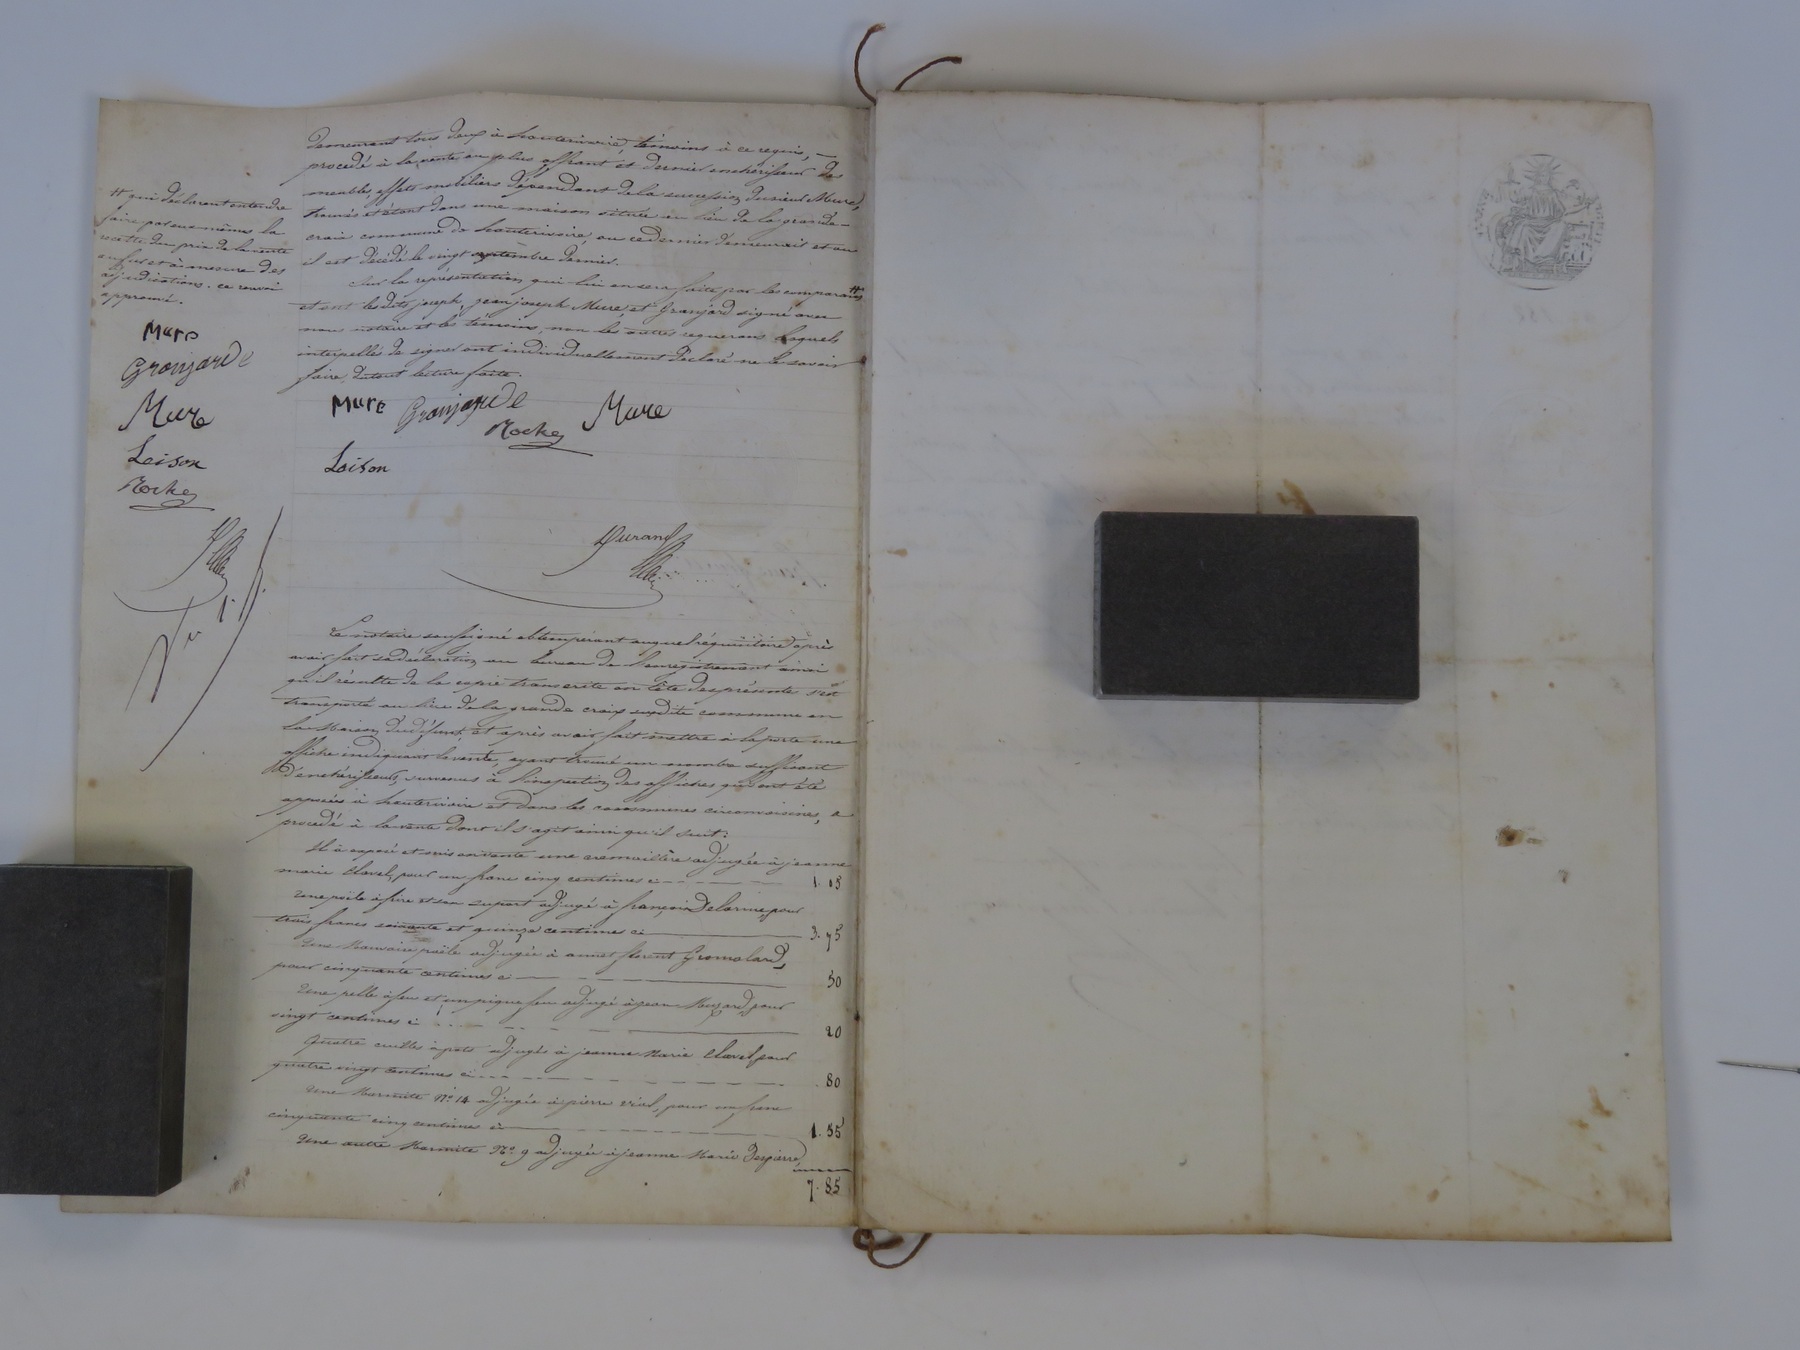 demeurant tous deux à hauterivoire, témoins à ce requis,
procédé à la vente au plus offrant et dernier enchérisseur des
meubles, effets mobiliers dépendant de la succession du sieur Mure,
trouvés et étant dans une maison située au lieu de la grande
croix commune de hauterivoire, ou ce dernier demeurait et ou
il est décédé le vingt septembre dernier.
Sur la représentation qui lui en sera faite par les comparants #
et ont les dits joseph, jean joseph Mure, et Granjard signé avec
nous notaire et les témoins, non les autres requerans lesquels
interpellés de signer ont individuellement déclaré ne le savoir
faire, du tout lecture faite.
# qui déclarent entendre
faire par eux-mêmes la
recette du prix de la vente
au fur et à mesure des
adjudications. ce renvoi
approuvé.
Mure
Granjard
Mure
Loison
Roche
Mure Granjard Mure
Roche
Loison
Durand
Le notaire soussigné obtempérant auquel réquisitoire, après
avoir fait sa déclaration au bureau de l'enregistrement ainsi
qu'il résulte de la copie transcrite en tête des présente s'est
transporté au lieu de la grande croix susdite commune en
la Maison du défunt, et après avoir fait mettre à la porte une
affiche indiquant la vente, ayant trouvé un nombre suffisant
d'enchérisseurs, survenus à l'inspection des affiches qui ont été
apposées à hauterivoire et dans les communes circonvoisines, a
procédé à la vente dont il s'agit ainsi qu'il suit:
Il à exposé et mis en vente une cremaillère adjugée à jeanne
marie Clavel, pour un franc cinq centimes ci 1. 05
une poêle à frire et son suport adjugé à françois Delorme, pour
trois francs soixante et quinze centimes ci 3. 75
une Mauvaise poêle adjugée à florent Gromolard,
pour cinquante centimes ci 50
une pelle à feu et un pique feu adjugé à jean pour
vingt centimes ci 20
Quatre à pots adjugés à jeanne Marie Clavel, pour
quatre vingt centimes ci 80
une Marmite N° 14 adjugée à pierre Vial, pour un franc
cinquante cinq centimes ci 1. 55
une autre Marmite N° 9 adjugée à jeanne Marie Despierre,
7. 85